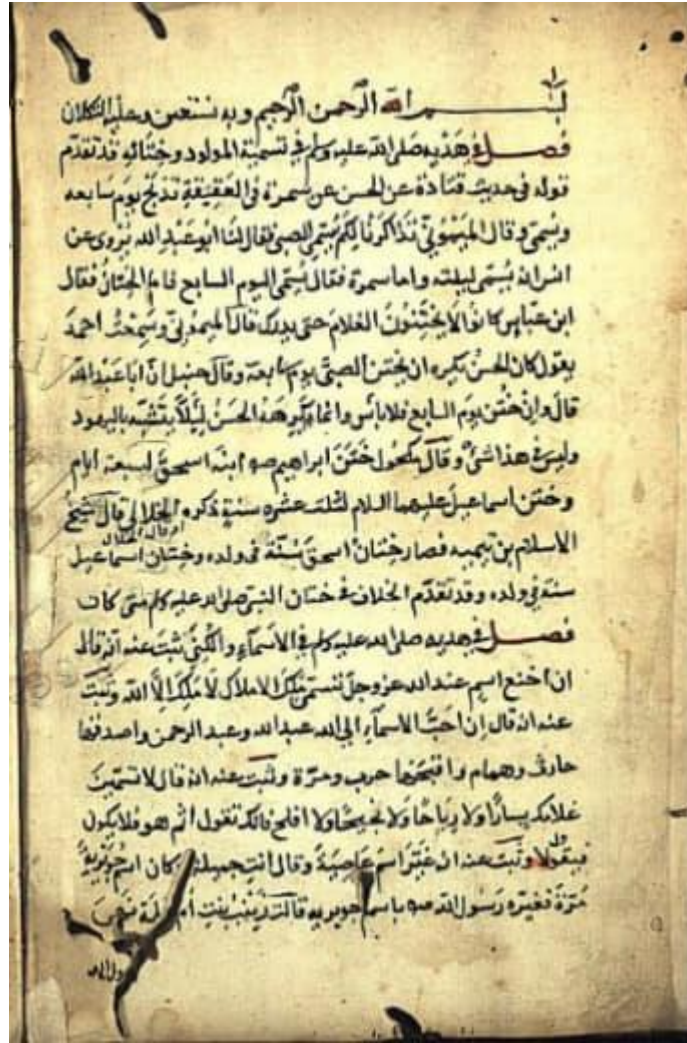 بسم الله الرحمن الرحيم وبه نستعين وعليه التكلان
فصل في هديه صلى الله عليه وسلم في تسمية المولود وختانه قد تقدم
قوله في حديث قتادة عن الحسن عن سمرة في العقيقة تذبح يوم سابعه
ويسمى وقال الميموني تذاكرنا لكم يسمى الصبي فقال لنا ابو عبد الله يروى عن
انس انه يسمى ليلته واما سمرة فقال يسمى اليوم السابع فاما الختان فقال
ابن عباس كانوا لا يختنون الغلام حتى يدرك قال الميموني وسمعت احمد
يقول كان الحسن يكره ان يختن الصبي يوم سابعه وقال حنبل ان ابا عبد الله
قال وان ختن يوم السابع فلا باس وانما كره هذا الحسن لئلا يتشبه باليهود
وليس في هذا شئ وقال مكحول ختن ابراهيم صم ابنه اسحق لسبعة ايام
وختن اسماعيل عليهما السلام لثلث عشرة سنة ذكره الخلال قال شيخ
الاسلام بن تيميه فصار ختان اسحق سنة في ولده وختان اسماعيل
سنة في ولده وقد تقدم الخلاف في ختان النبي صلى الله عليه وسلم متى كان
فصل في هديه صلى الله عليه وسلم في الاسماء والكنى ثبت عنه انه قال
ان اخنع اسم عند الله عز وجل تسمى ملك الاملاك لا ملك الا الله وثبت
عنه انه قال ان احب الاسماء الى الله عبد الله وعبد الرحمن واصدقها
حارث وهمام واقبحها حرب ومرة وثبت عنه انه قال لا تسمين
غلامك يسارا ولا رباحا ولا نجيحا ولا افلح فانك تقول اثم هو فلا يكون
فيقول لا وثبت عنه ان غير اسم عاصية وقال انت جميلة كان اسم جويرية
مرة فغيره رسول الله صم باسم جويريه قالت زينب بنت ام سلمة نهى